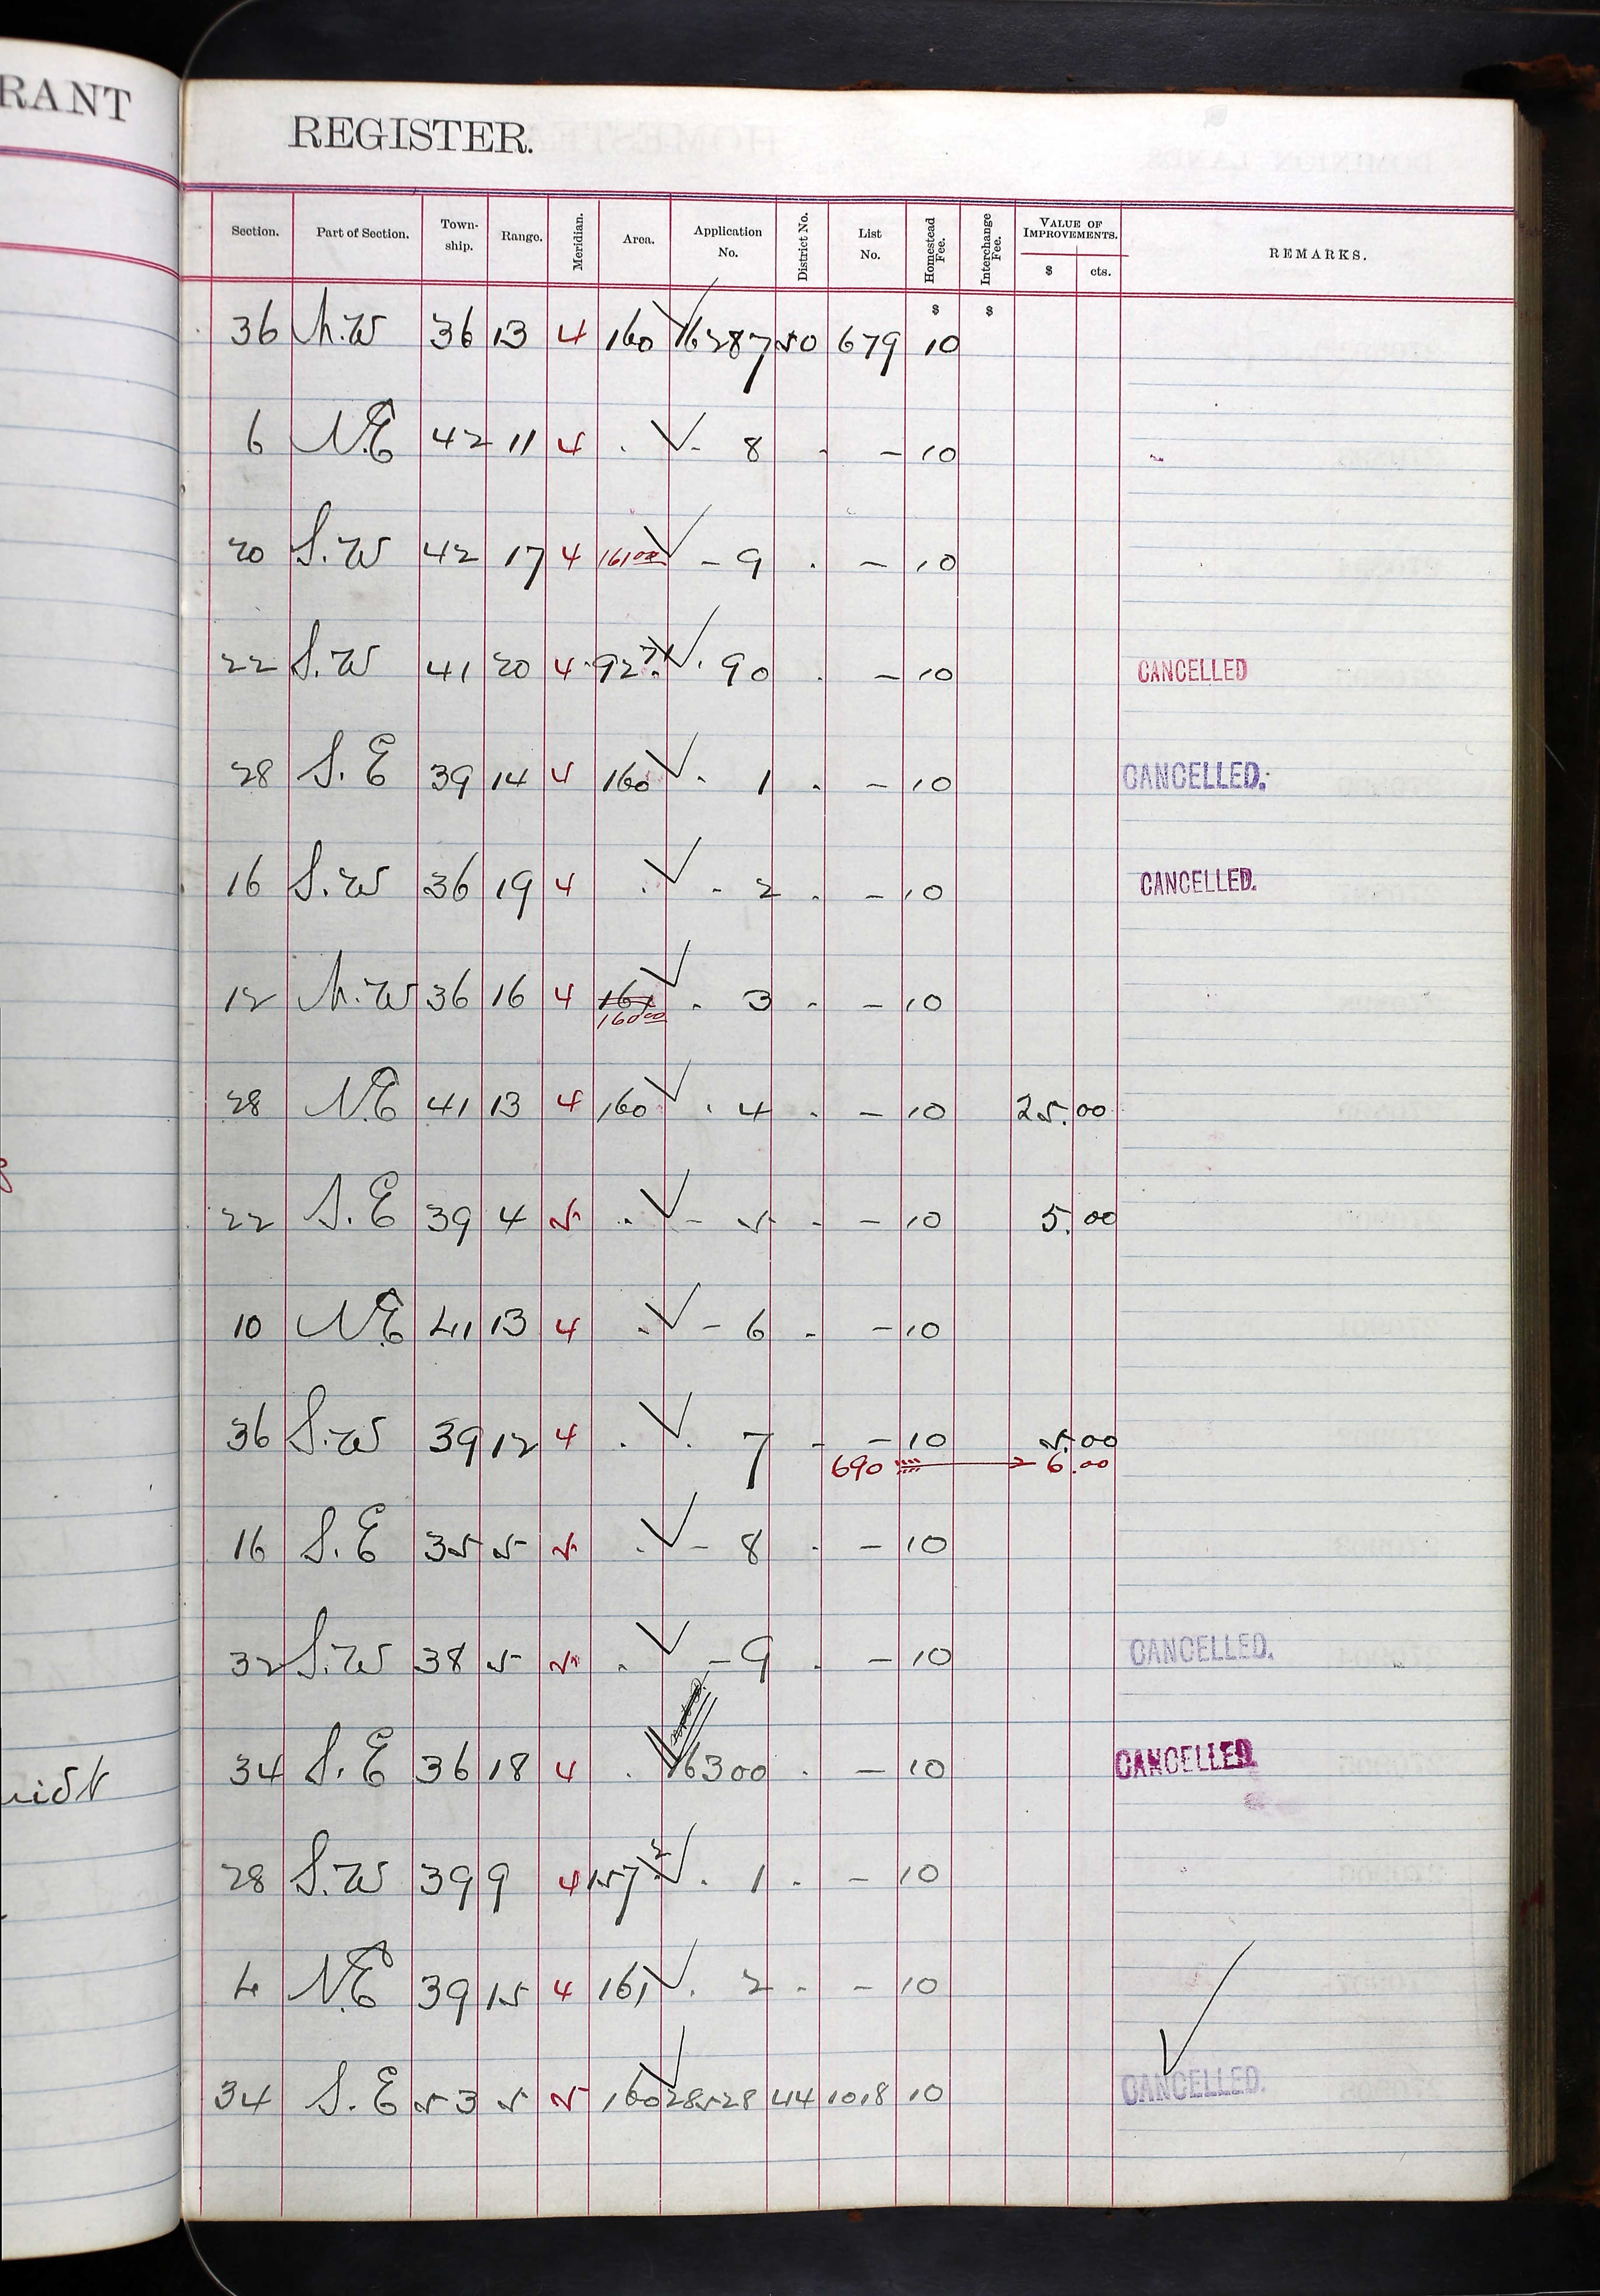 RANT
REGISTER.
Section. Part of Section. Town-ship. Range. Meridian. Area. Application No. District No. List No. Homestead Fee. Interchange Fee. VALUE OF IMPROVEMENTS. $ cts. REMARKS.
$ $
36 N.W 36 13 4 160 16287 50 679 10
6 N.E 42 11 4 . - 8 . - 10
20 S.W 42 17 4 161 00 - 9 . - 10
22 S.W 41 20 4 92 . 90 . - 10 CANCELLED
28 S.E 39 14 4 160 . 1 . - 10 CANCELLED.
16 S.W 36 19 4 . - 2 . - 10 CANCELLED.
12 N.W 36 16 4 161 - 3 - - 10
160 00
28 N.E 41 13 4 160 . 4 . - 10 25.00
22 S.E 39 4 5 . - 5 - - 10 5.00
10 N.E 41 13 4 . - 6 - - 10
36 S.W 39 12 4 . . 7 - - 10 5.00
690 6.00
16 S.E 35 5 5 . - 8 . - 10
32 S.W 38 5 5 . - 9 . - 10 CANCELLED.
34 S.E 36 18 4 . 16300 . - 10 CANCELLED
28 S.W 39 9 4 157 2 . 1 - - 10
4 N.E 39 15 4 161 . 2 - - 10
34 S.E 53 5 5 160 28528 44 1018 10 CANCELLED.